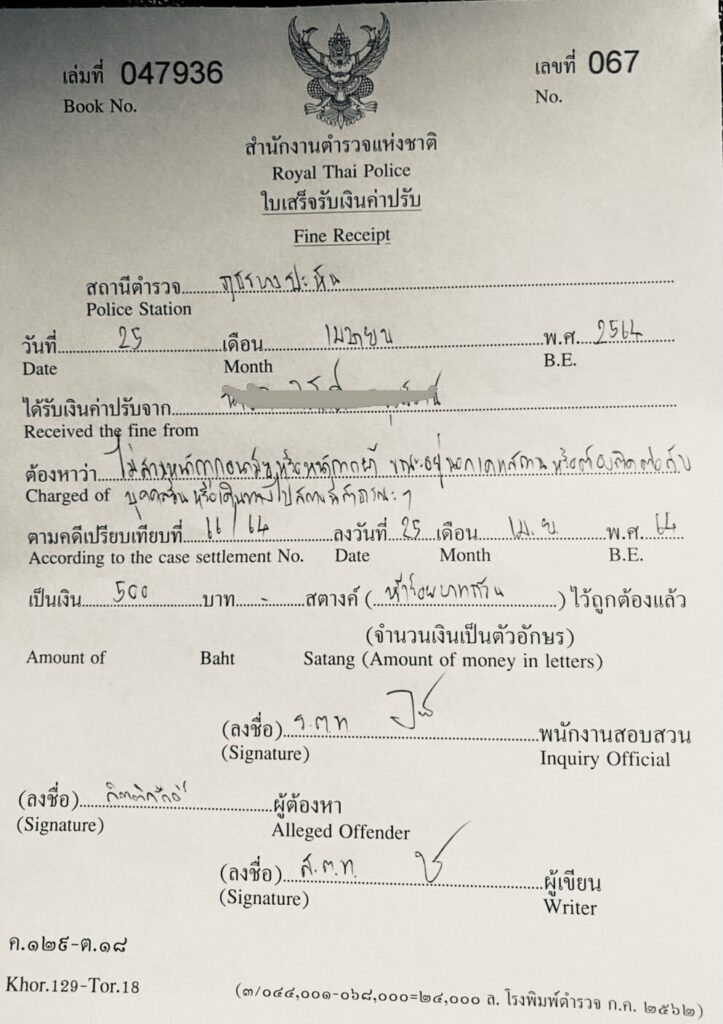 เล่มที่ 047936 เลขที่ 067
Book No. No.
สำนักงานตำรวจแห่งชาติ
Royal Thai Police
ใบเสร็จรับเงินค่าปรับ
Fine Receipt
สถานีตำรวจ
Police Station
วันที่ 25 เดือน เมษายน พ.ศ. 2564
Date Month B.E.
ได้รับเงินค่าปรับจาก
Received the fine from
ต้องหาว่า ไม่สวมหน้ากากอนามัยหรือหน้ากากผ้า ขณะอยู่นอกเคหสถาน หรือต้องติดต่อกับ
Charged of บุคคลอื่น หรือเดินทางไปสถานที่สาธารณะๆ
ตามคดีเปรียบเทียบที่ 66/64 ลงวันที่ 25 เดือน เม.ย. พ.ศ. 64
According to the case settlement No. Date Month B.E.
เป็นเงิน 500 บาท - สตางค์ (ห้าร้อยบาทถ้วน) ไว้ถูกต้องแล้ว
(จำนวนเงินเป็นตัวอักษร)
Amount of Baht Satang (Amount of money in letters)
(ลงชื่อ) ร.ต.ท. พนักงานสอบสวน
(Signature) Inquiry Official
(ลงชื่อ) ผู้ต้องหา
(Signature) Alleged Offender
(ลงชื่อ) ส.ต.ท. ผู้เขียน
(Signature) Writer
ค.๑๒๙-ต.๑๘
Khor.129-Tor.18 (๓/๐๔๔,๐๐๑-๐๖๘,๐๐๐=๒๔,๐๐๐ ล. โรงพิมพ์ตำรวจ ก.ค. ๒๕๖๒)